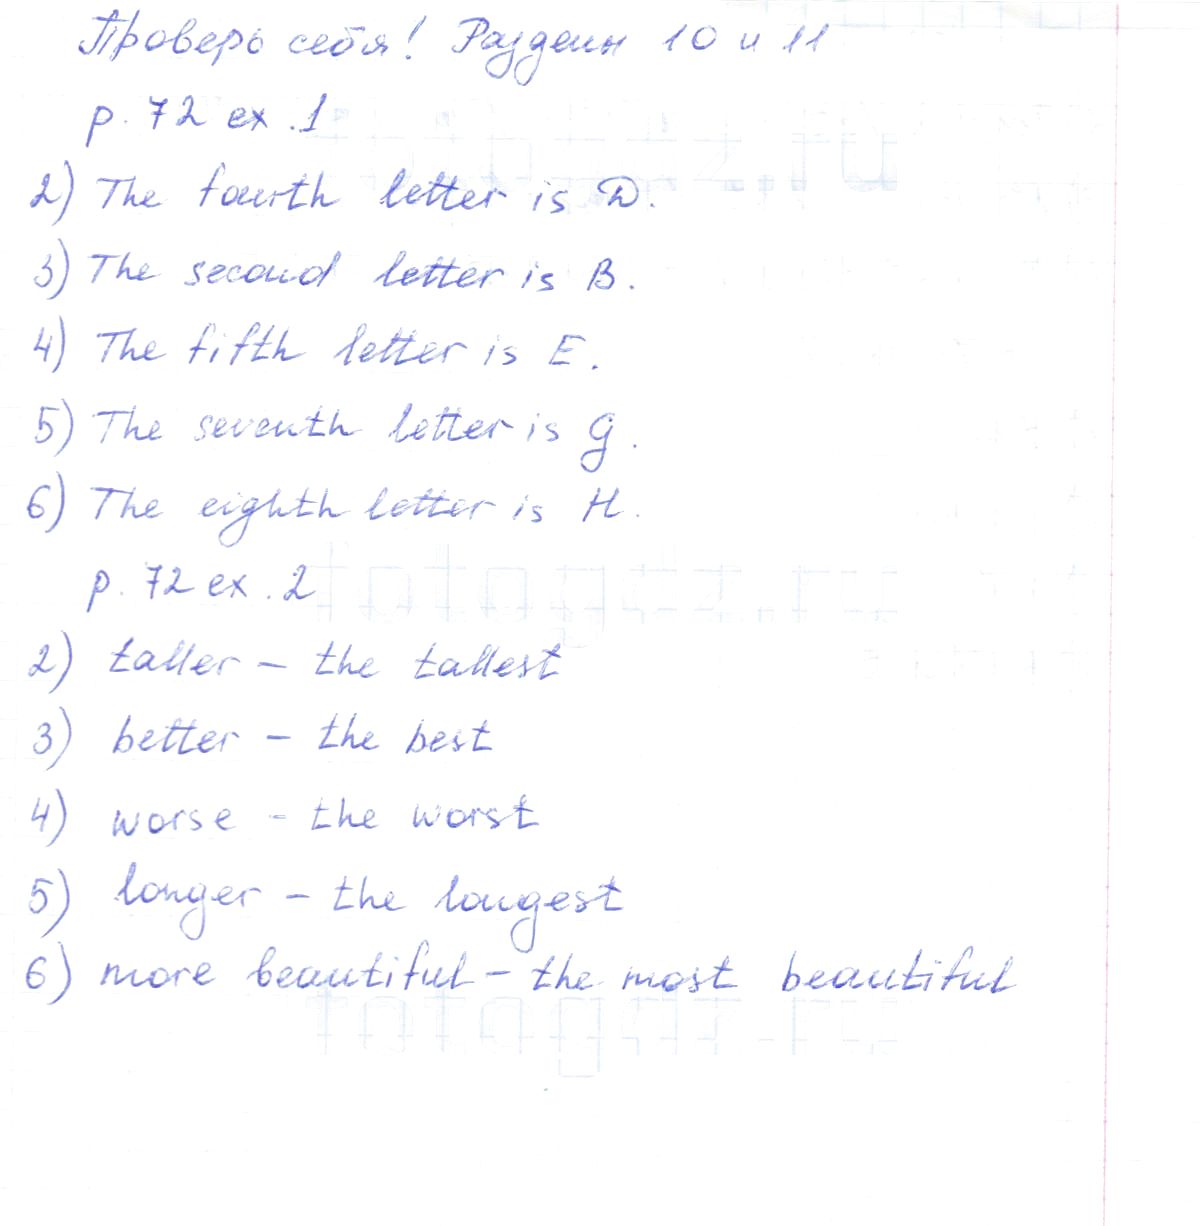 Проверь себя! Разделы 10 и 11
p. 72 ex. 1
2) The fourth letter is D.
3) The second letter is B.
4) The fifth letter is E.
5) The seventh letter is G.
6) The eighth letter is H.
p. 72 ex. 2
2) taller - the tallest
3) better - the best
4) worse - the worst
5) longer - the longest
6) more beautiful - the most beautiful